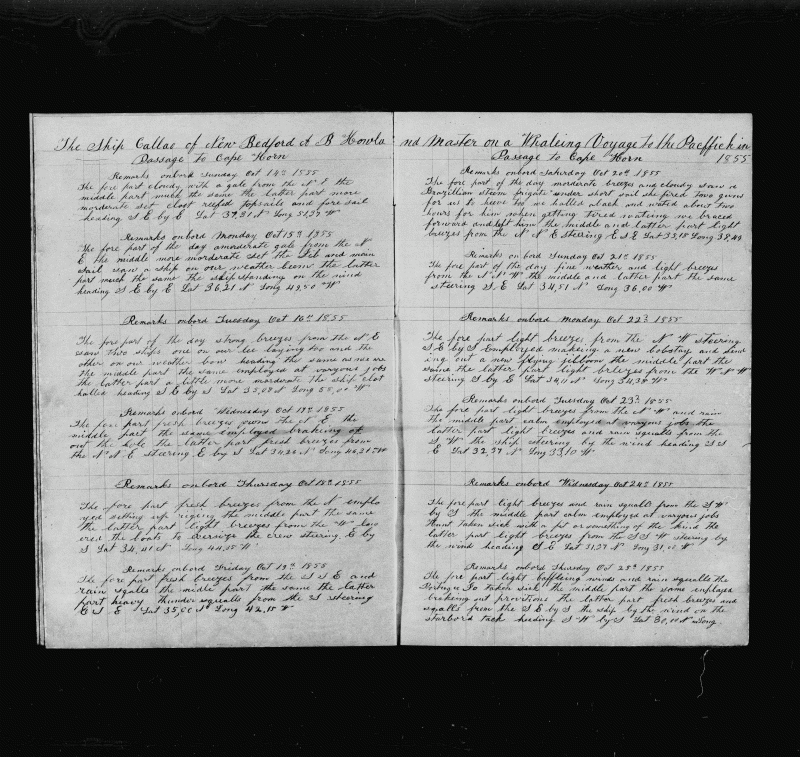 The Ship Callao of New Bedford A B Howla
Passage to Cape Horn
Remarks onbord Sunday Oct 14th 1855
The fore part cloudy with a gale from the N E the
middle part much the same the latter part more
morderate set cloct reefed topsails and fore sail
heading S E by E Lat 37,31 N Long 51,37 W
Remarks onbord Monday Oct 15th 1855
The fore part of the day amorderate gale from the N
E the middle more morderate set the Jeb and main
sail saw a ship on our weather beem the latter
part much the same the ship standing on the wind
heading S E by E Lat 36,21 N Long 49,50 W
Remarks onbord Tuesday Oct 16th 1855
The fore part of the day strong breezes from the N E
saw two ships one on our lee laying too and the
other on our weather bow heading the same as we are
the middle part the same employed at varyous jobs
the latter part a little more morderate the ship clost
halled heading S E by S Lat 35,08 N Long W
Remarks onbord Wednesday Oct 17th 1855
The fore part fresh breezes from the N E the
middle part the same employed braking of
out hole the latter part fresh breezes from
the N N E steering E by S Lat 34,26 N Long 46,21 W
Remarks onbord Thursday Oct 18th 1855
The fore part fresh breezes from the N emplo
yed setting up riging the middle part the same
the latter part light breezes from the W low
ered the boats to exersize the crew steering E by
S Lat 34,41 N Long 44,55 W
Remarks onbord Friday Oct 19th 1855
The fore part fresh breezes from the S S E and
rain sqalls the midle part the same the latter
part heavy thunder squalls from the S steering
E S E Lat 35,00 N Long 42,15 W
nd Master on a Whaleing Voyage to the Paciffick in
Passage to Cape Horn 1855
Remarks onbord Saturday Oct 20th 1855
The fore part of the day morderate breezes and cloudy saw a
Brazillian steem frigate under short sail she fired two guns
for us to heeve too we halled aback and wated about two
hours for him when getting tired wateing we braced
forward and left him the middle and latter part light
breezes from the N N E steering E S E Lat 35,15 Long 38,49
Remarks onbord Sunday Oct 21st 1855
The fore part of the day fine weather and light breezes
from the N N W the middle and latter part the same
steering S E Lat 34,51 N Long 36,00 W
Remarks onbord Monday Oct 22d 1855
The fore part light breezes from the N W steering
S E by S employed making a new bobstay and send
ing out a new flying gibboom the middle part the
same the latter part light breezes from the W N W
steering S by E Lat 34,11 N Long 34,38 W
Remarks onbord Tuesday Oct 23d 1855
The fore part light breezes from the N W and rain
the middle part calm employed at varyous jobs the
latter part light breezes and rain squalls from the
S W the ship steering by the wind heading S S
E Lat 32,37 N Long 33,10 W
Remarks onbord Wednesday Oct 24th 1855
The fore part light breezes and rain squalls from the S W
by S the middle part calm employed at varyous jobs
Hunt taken sick with a fit or something of the kind the
latter part light breezes from the S S W steering by
the wind heading S E Lat 31,27 N Long 31,11 W
Remarks onbord Thursday Oct 25th 1855
The fore part light baffleing winds and rain squalls the
Portugee Jo taken sick the middle part the same employed
brakeing out provitions the latter part fresh breezes and
squalls from the S E by S the ship by the wind on the
starbord tack heading S W by S Lat 30,11 N Long